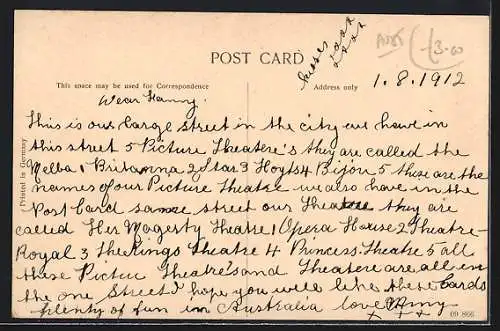 kisses xxxx
xxxx
A085
-/3.00
POST CARD
This space may be used for Correspondence
Address only
1.8.1912
Dear Fanny.
This is our large street in the city we have in
this street 5 Picture Theatere's they are called the
Melba 1 Britanna 2 Star 3 Hoyts 4 Bijou 5 these are the
names of our Picture Theatre we also have in the
Post Card same street our Theatre they are
called Her Magesty Theatre 1 Opera House 2 Theatre-
Royal 3 The Kings Theatre 4 Princess. Theatre 5 all
these Pictur Theatre's and Theatere are all in
the one Street I hope you will like these cards
plenty of fun in Australia love Amy
x x x x
09 866
Printed in Germany